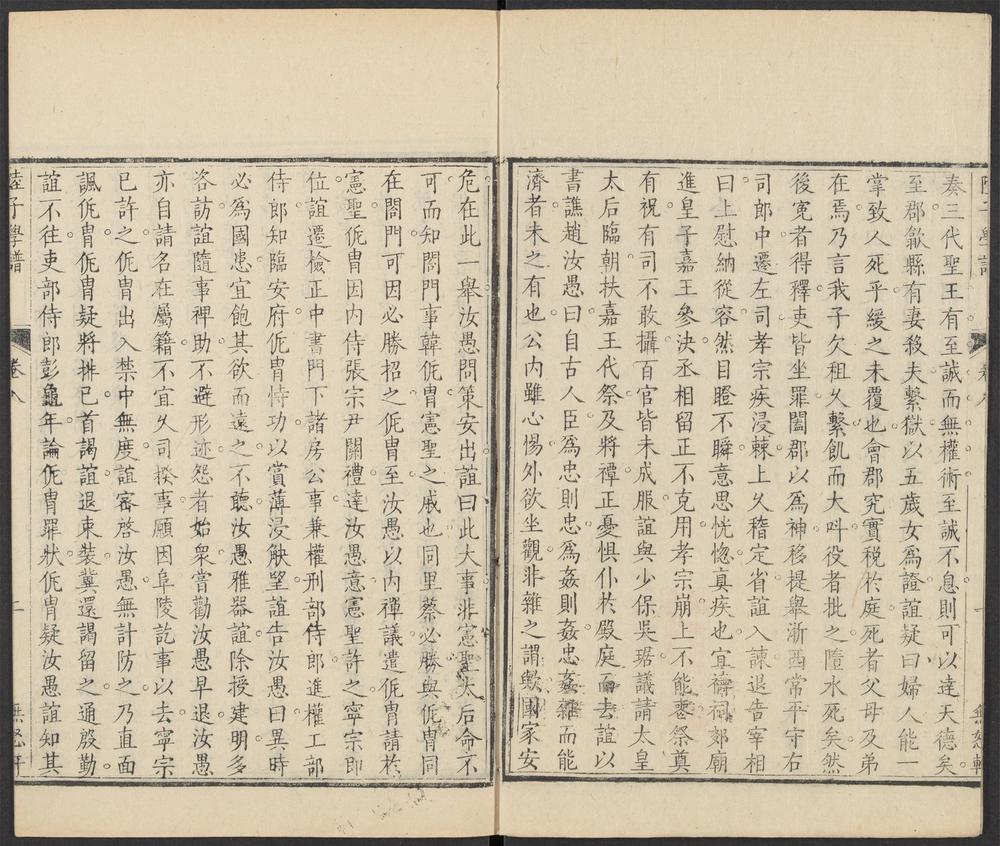 陸子學譜
卷八
一
無怒軒
奏三代聖王有至誠而無權術至誠不息則可以達天德矣
至郡歙縣有妻殺夫繫獄以五歲女爲證誼疑曰婦人能一
掌致人死乎緩之未覆也會郡究實稅於庭死者父母及弟
在焉乃言我子欠租久繫飢而大叫役者批之墮水死矣然
後寃者得釋吏皆坐罪闔郡以爲神移提舉浙西常平守右
司郎中遷左司孝宗疾浸棘上久稽定省誼入諫退告宰相
曰上慰納從容然目瞪不瞬意思恍惚真疾也宜禱祠郊廟
進皇子嘉王參決丞相留正不克用孝宗崩上不能喪祭奠
有祝有司不敢攝百官皆未成服誼與少保吳琚議請太皇
太后臨朝扶嘉王代祭及將禫正憂懼仆於殿庭而去誼以
書譙趙汝愚曰自古人臣爲忠則忠爲姦則姦忠姦雜而能
濟者未之有也公內雖心惕外欲坐觀非雜之謂歟國家安
危在此一舉汝愚問策安出誼曰此大事非憲聖太后命不
可而知閤門事韓侂冑憲聖之戚也同里蔡必勝與侂冑同
在閤門可因必勝招之侂冑至汝愚以內禪議遣侂冑請於
憲聖侂冑因內侍張宗尹關禮達汝愚意憲聖許之寧宗即
位誼遷檢正中書門下諸房公事兼權刑部侍郎進權工部
侍郎知臨安府侂冑恃功以賞薄浸觖望誼告汝愚曰異時
必爲國患宜飽其欲而遠之不聽汝愚雅器誼除授建明多
咨訪誼隨事裨助不避形迹怨者始衆嘗勸汝愚早退汝愚
亦自請名在屬籍不宜久司揆事願因阜陵訖事以去寧宗
已許之侂冑出入禁中無度誼密啓汝愚無計防之乃直面
諷侂冑侂冑疑將排已首謁誼退束裝冀還謁留之通殷勤
誼不往吏部侍郎彭龜年論侂冑罪狀侂冑疑汝愚誼知其
陸子學譜
卷八
二
無怒軒